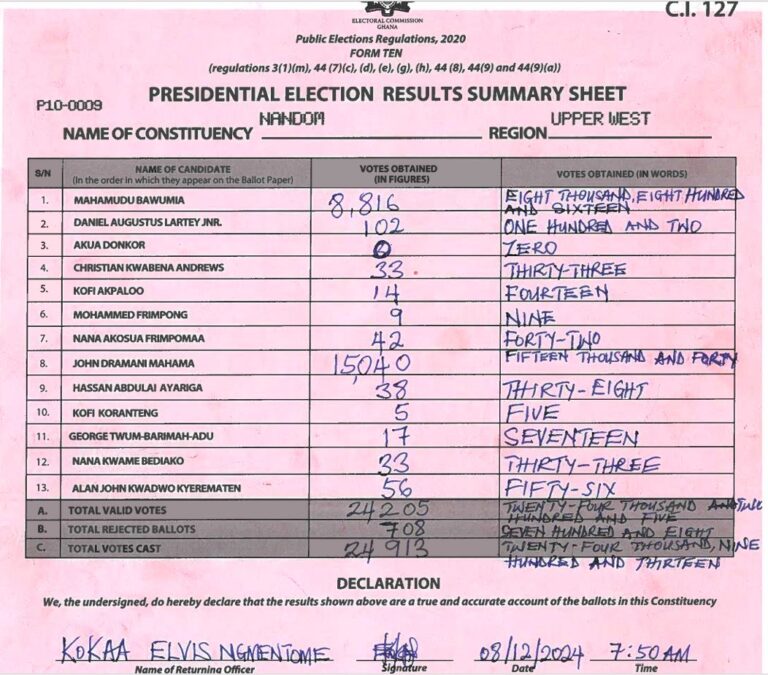 C.I. 127
ELECTORAL COMMISSION
GHANA
Public Elections Regulations, 2020
FORM TEN
(regulations 3(1)(m), 44 (7)(c), (d), (e), (g), (h), 44 (8), 44(9) and 44(9)(a))
P10-0009
PRESIDENTIAL ELECTION RESULTS SUMMARY SHEET
NAME OF CONSTITUENCY NANDOM REGION UPPER WEST
S/N NAME OF CANDIDATE (In the order in which they appear on the Ballot Paper) VOTES OBTAINED (IN FIGURES) VOTES OBTAINED (IN WORDS)
1. MAHAMUDU BAWUMIA 8,816 EIGHT THOUSAND, EIGHT HUNDRED AND SIXTEEN
2. DANIEL AUGUSTUS LARTEY JNR. 102 ONE HUNDRED AND TWO
3. AKUA DONKOR 0 ZERO
4. CHRISTIAN KWABENA ANDREWS 33 THIRTY-THREE
5. KOFI AKPALOO 14 FOURTEEN
6. MOHAMMED FRIMPONG 9 NINE
7. NANA AKOSUA FRIMPOMAA 42 FORTY-TWO
8. JOHN DRAMANI MAHAMA 15,040 FIFTEEN THOUSAND AND FORTY
9. HASSAN ABDULAI AYARIGA 38 THIRTY-EIGHT
10. KOFI KORANTENG 5 FIVE
11. GEORGE TWUM-BARIMAH-ADU 17 SEVENTEEN
12. NANA KWAME BEDIAKO 33 THIRTY-THREE
13. ALAN JOHN KWADWO KYEREMATEN 56 FIFTY-SIX
A. TOTAL VALID VOTES 24205 TWENTY-FOUR THOUSAND AND HUNDRED AND FIVE
B. TOTAL REJECTED BALLOTS 708 SEVEN HUNDRED AND EIGHT
C. TOTAL VOTES CAST 24913 TWENTY-FOUR THOUSAND, NINE HUNDRED AND THIRTEEN
DECLARATION
We, the undersigned, do hereby declare that the results shown above are a true and accurate account of the ballots in this Constituency
KOKAA ELVIS NGMENTOME 08/12/2024 7:50AM
Name of Returning Officer Signature Date Time